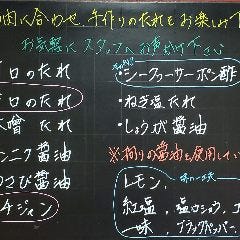 肉に合わせ、手作りのたれをお楽しみ下
お気軽にスタッフへお声がけ下さい
ロのたれ
ロのたれ
噌だれ
ンニク醤油
さび醤油
チジャン
・シークァーサーポン酢
・ねぎ塩だれ
・しょうが醤油
の醤油を使用してい
レモン、
味の一味
紅塩、塩コショウ、
味、ブラックペッパー